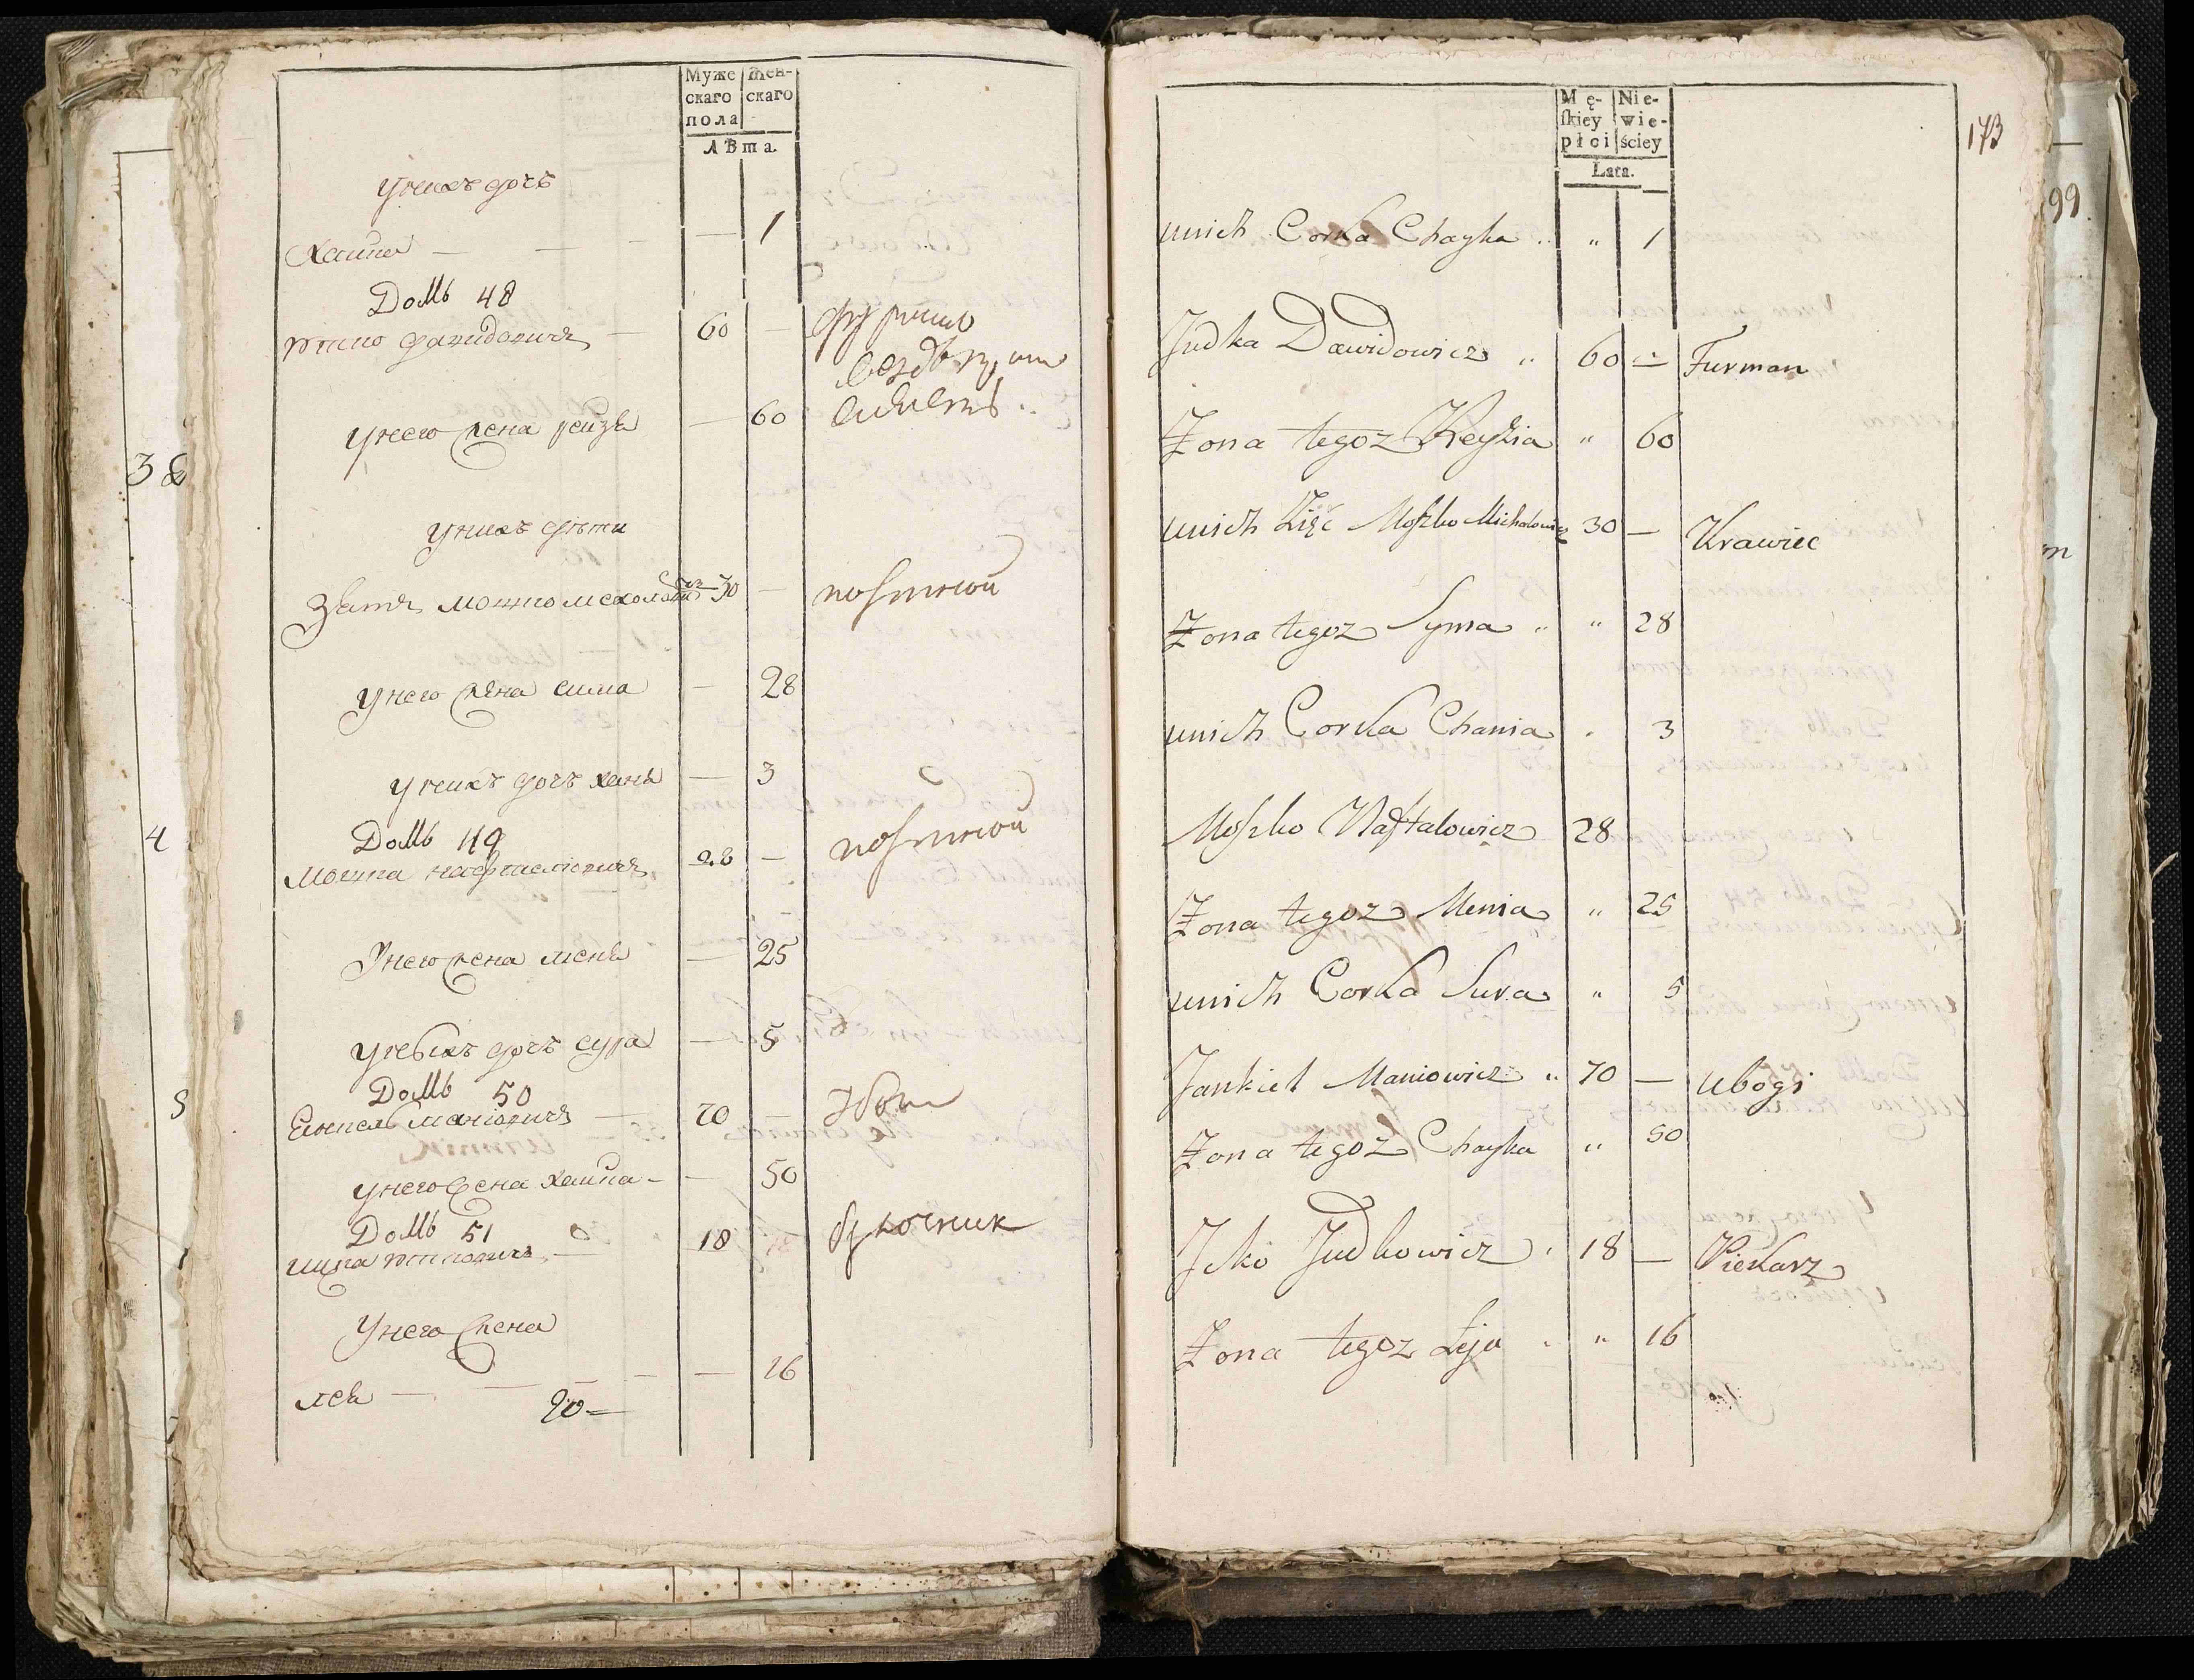 Муже скаго пола
Жен- скаго
Лѣта.
у нихъ дочъ
хаика — — — — 1
Домъ 48
юдко давидовичъ — 60 —
у него жена рейзя — 60
у нихъ дѣти
Зять мошко мехолович 30 —
у него жена сима — 28
у нихъ дочъ ханя — 3
Домъ 49
Мошка нафталіовичъ 28 —
У него жена меня — 25
у небихъ дочъ сура — 5
Домъ 50
Еинкел маніовичъ — 70 —
у него жена хаика — — 50
Домъ 51
ицка юдковичъ — 18
У него жена
лея — — — — 16
20 =
38
4
5
Mę- skiey płci
Nie- wie- ściey
Lata.
173
99.
unich Corka Chayka .. " 1
Judka Dawidowicz " 60 — Furman
Żona tegoż Reyzia " 60
unich Zięć Moszko Michalowicz 30 — Krawiec
Żona tegoż Syma " " 28
unich Corka Chania . 3
Moszko Naftalowicz 28
Żona tegoż Menia " 25
unich Corka Sura " 5
Jankiel Maniowicz " 70 — Ubogi
Żona tegoż Chayka " 50
Icko Judkowicz . 18 — Piekarz
Żona tegoż Leja . " 16